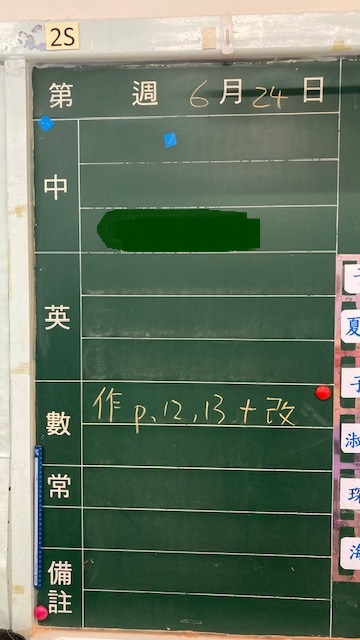 2S
第 週 6月24日
中
英
數 作 p、12,13 + 改
常
備註
夏
子
淑
琛